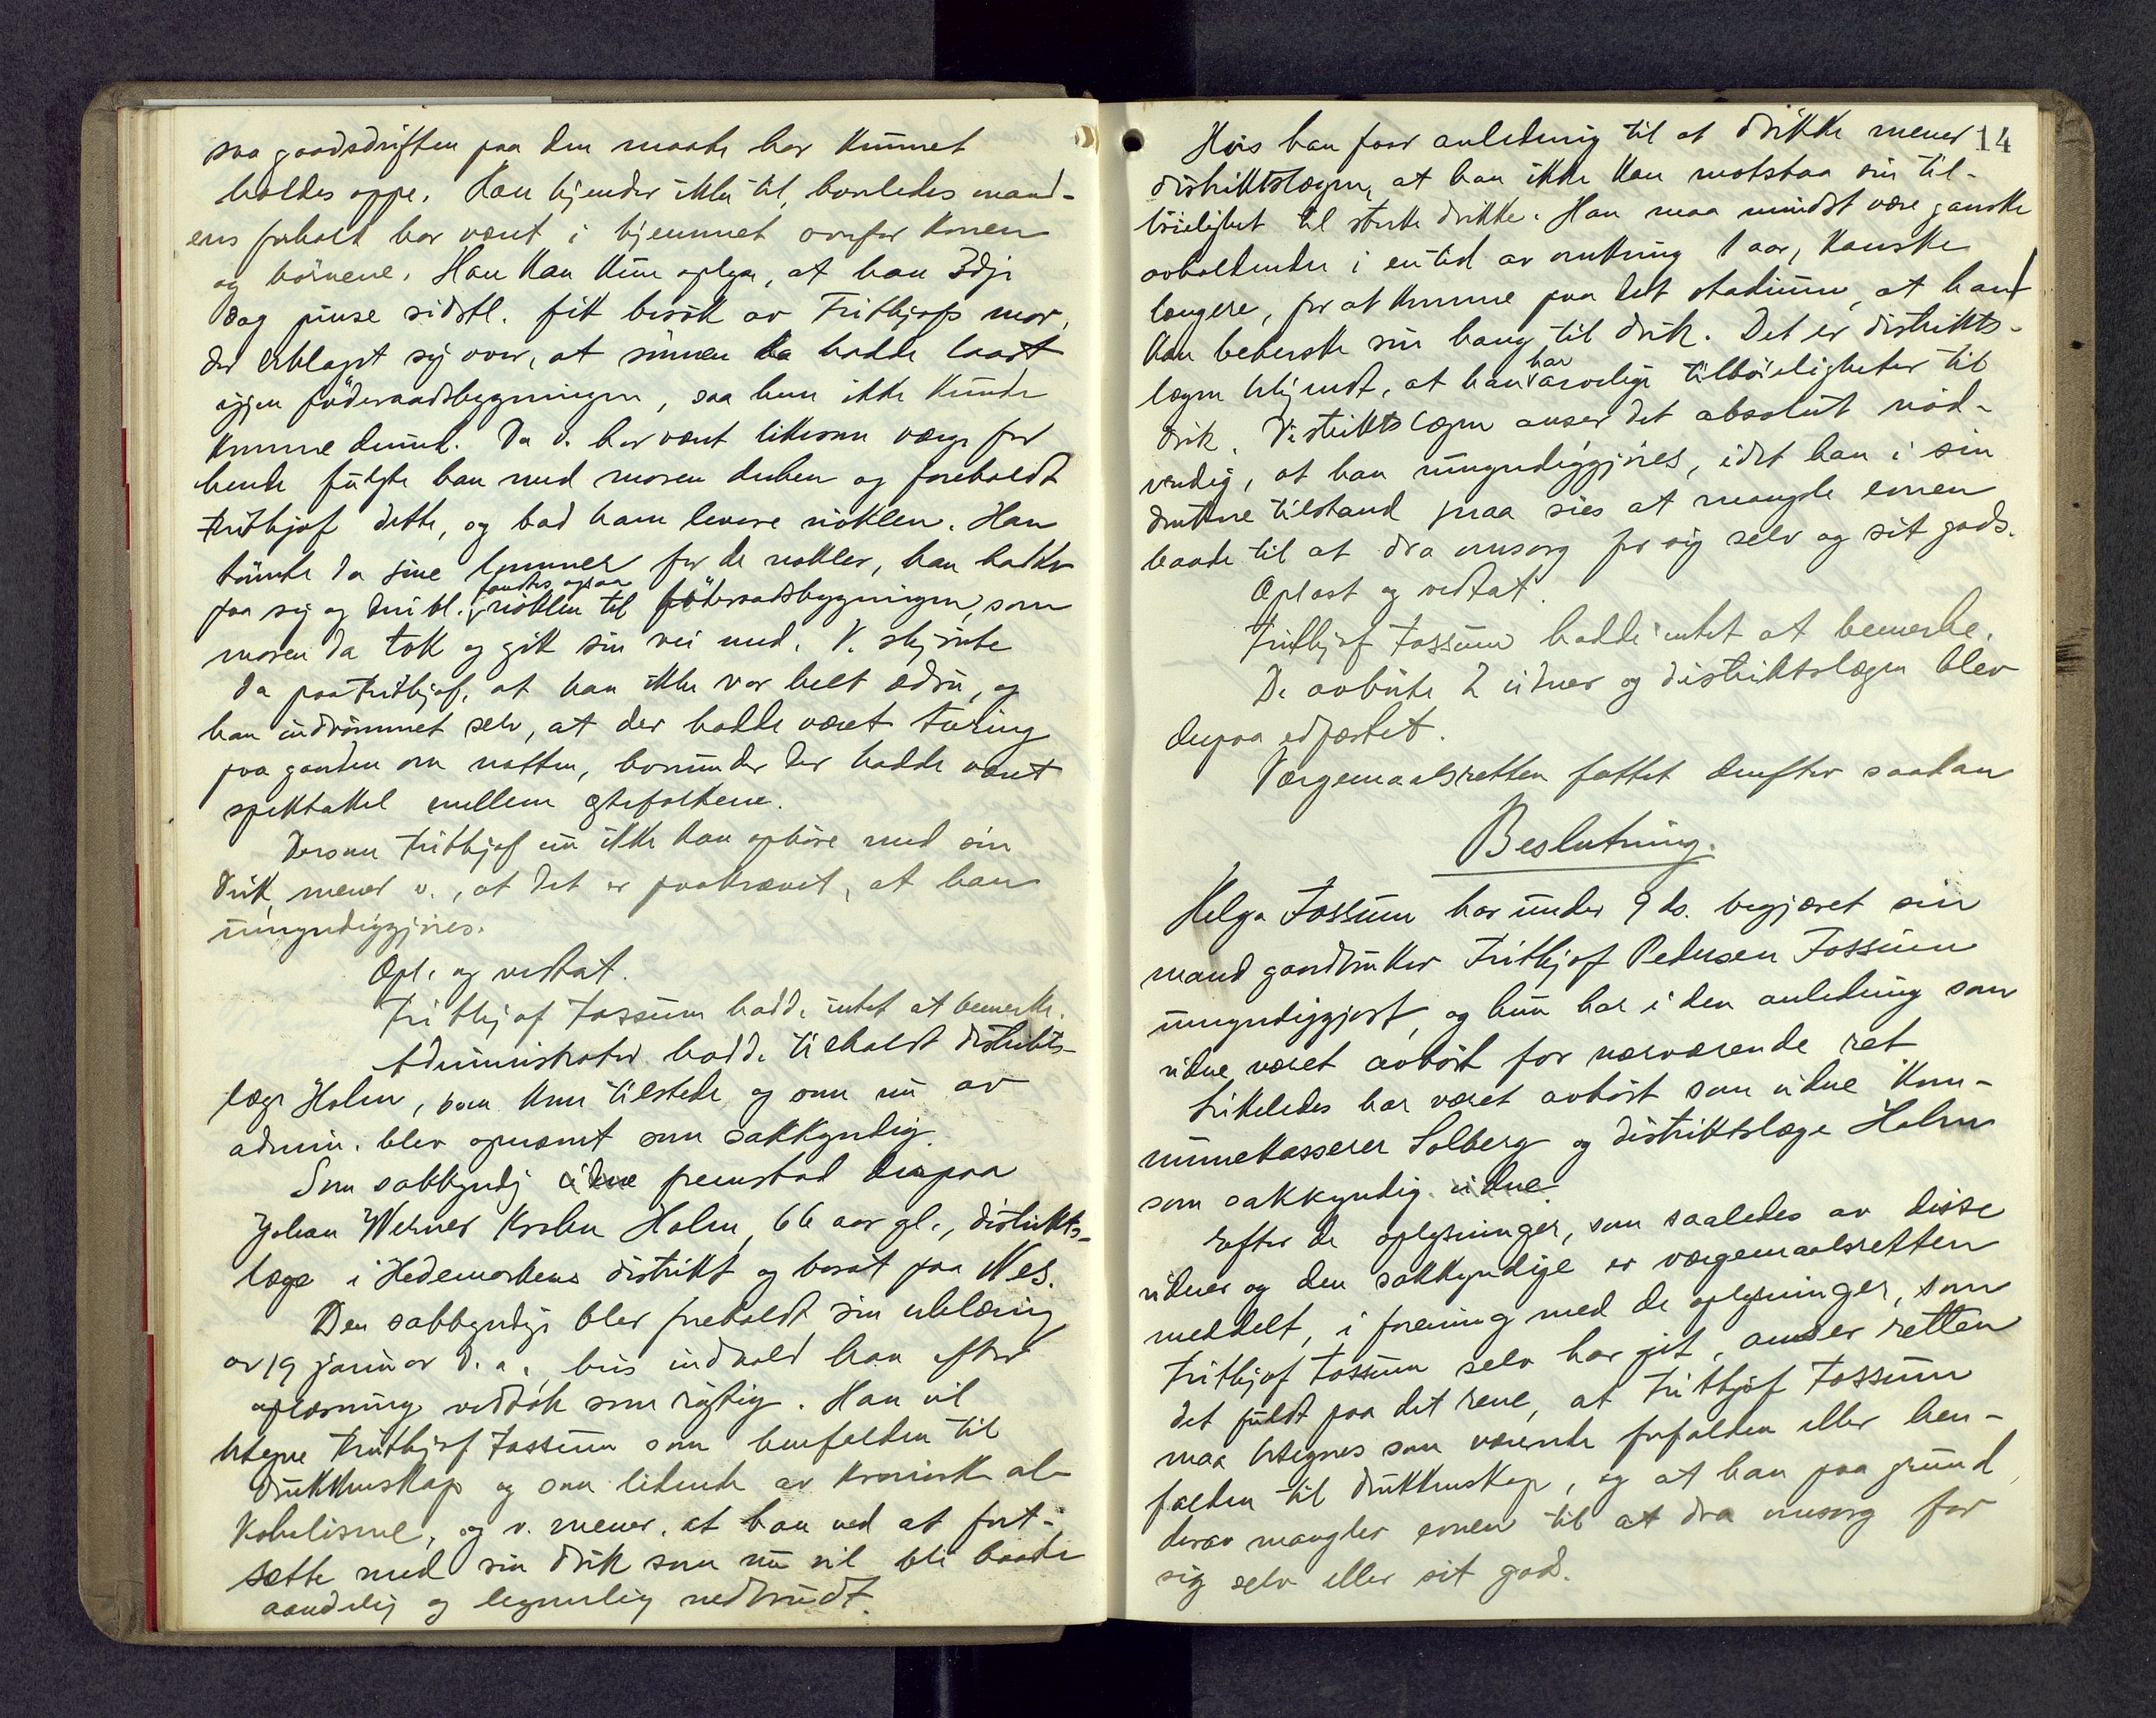 saa gaardsdriften paa den maate har kunnet
holdes oppe. Han kjender ikke til, hvorledes mand-
ens forhold har været i hjemmet overfor konen
og börnene. Han kan kun oplyse, at han 3dje
dag pinse sidstl. fik besök av Frithjofs mor,
der beklaget sig over, at sönnen ha hadde laast
igjen föderaadsbygningen, saa hun ikke kunde
komme derind. Da v. har været likesom verge for
hende fulgte han med moren derhen og foreholdt
Frithjof dette, og bad ham levere nöklen. Han
tömte da sine lommer for de nökler, han hadde
paa sig og deribl. fandtes ogsaa nöklen til föderaadsbygningen, som
moren da tok og gik sin vei med. V. skjönte
da paa Frithjof, at han ikke var helt ædru, og
han indrömmet selv, at der hadde været turing
paa gaarden om natten, hvorunder der hadde været
spektakkel mellem egtefolkene.
Dersom Frithjof nu ikke kan ophöre med sin
drik, mener v., at det er paakrævet, at han
umyndiggjöres.
Opl. og vedtat.
Frithjof Fossum hadde intet at bemerke.
Administrator hadde tilkaldt distrikts-
læge Holm, som kom tilstede og som nu av
admin. blev opnævnt som sakkyndig.
Som sakkyndig vidne fremstod derpaa
Johan Werner Holm, 66 aar gl., distrikts-
læge i Hedemarkens distrikt og bosat paa Nes.
Den sakkyndige blev foreholdt sin erklæring
av 19 januar d. a., hvis indhold han efter
oplæsning vedtok som rigtig. Han vil
betegne Frithjof Fossum som henfalden til
drukkenskap og som lidende av kronisk al-
koholisme, og v. mener, at han ved at fort-
sætte med sin drik som nu vil bli baade
aandelig og legemlig nedbrudt.
14
Hvis han faar anledning til at drikke mener
distriktslægen, at han ikke kan motstaa sin til-
böielighet til sterke drikke. Han maa mindst være ganske
avholdende i en tid av omkring 1 aar, kanske
længere, for at komme paa det stadium, at han
kan beherske sin hang til drik. Det er distrikts-
lægen bekjendt, at han har arvelige tilböieligheter til
drik. Distriktslægen anser det absolut nöd-
vendig, at han umyndiggjöres, idet han i sin
drukne tilstand maa sies at mangle evnen
baade til at dra omsorg for sig selv og sit gods.
Oplæst og vedtat.
Frithjof Fossum hadde intet at bemerke.
De avhörte 2 vidner og distriktslægen blev
derpaa edfæstet.
Værgemaalsretten fattet derefter saadan
Beslutning.
Helga Fossum har under 9 ds. begjæret sin
mand gaardbruker Frithjof Pedersen Fossum
umyndiggjort, og hun har i den anledning som
vidne været avhört for nærværende ret.
Likeledes har været avhört som vidne kom-
munekasserer Solberg og distriktslæge Holm
som sakkyndig vidne.
Efter de oplysninger, som saaledes av disse
vidner og den sakkyndige er værgemaalsretten
meddelt, i forening med de oplysninger, som
Frithjof Fossum selv har git, anser retten
det fuldt paa det rene, at Frithjof Fossum
maa betegnes som værende forfalden eller hen-
falden til drukkenskap, og at han paa grund
derav mangler evnen til at dra omsorg for
sig selv eller sit gods.